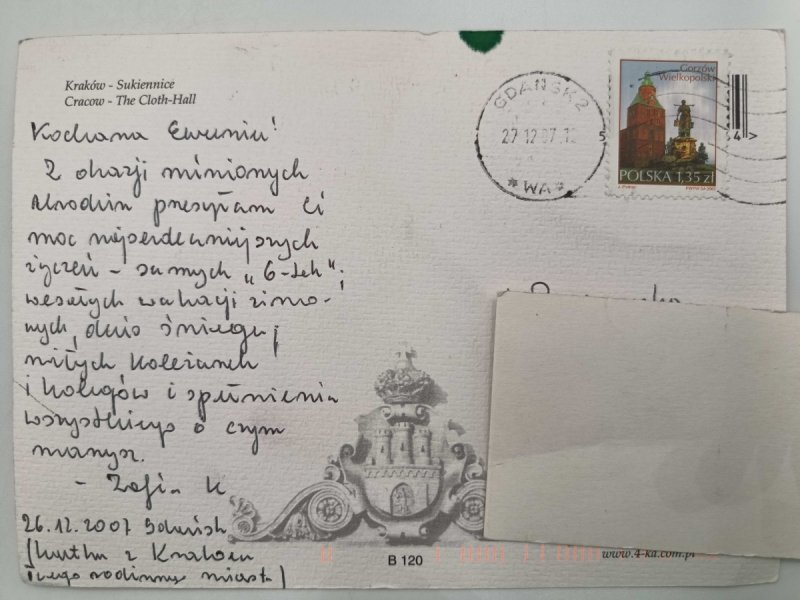 Kraków - Sukiennice
Cracow - The Cloth-Hall
Kochana Ewuniu!
Z okazji minionych
Urodzin przesyłam Ci
moc najserdeczniejszych
życzeń - samych „6-tek",
wesołych wakacji zimo-
wych, dużo śniegu,
miłych koleżanek
i kolegów i spełnienia
wszystkiego o czym
marzysz.
- Zofia K
26.12.2007 Gdańsk
(kartka z Krakowa
Twego rodzinnego miasta)
GDAŃSK 2
27 12 07
*WA*
Gorzów
Wielkopolski
POLSKA 1,35 zł
5
4>
B 120
www.4-ka.com.pl